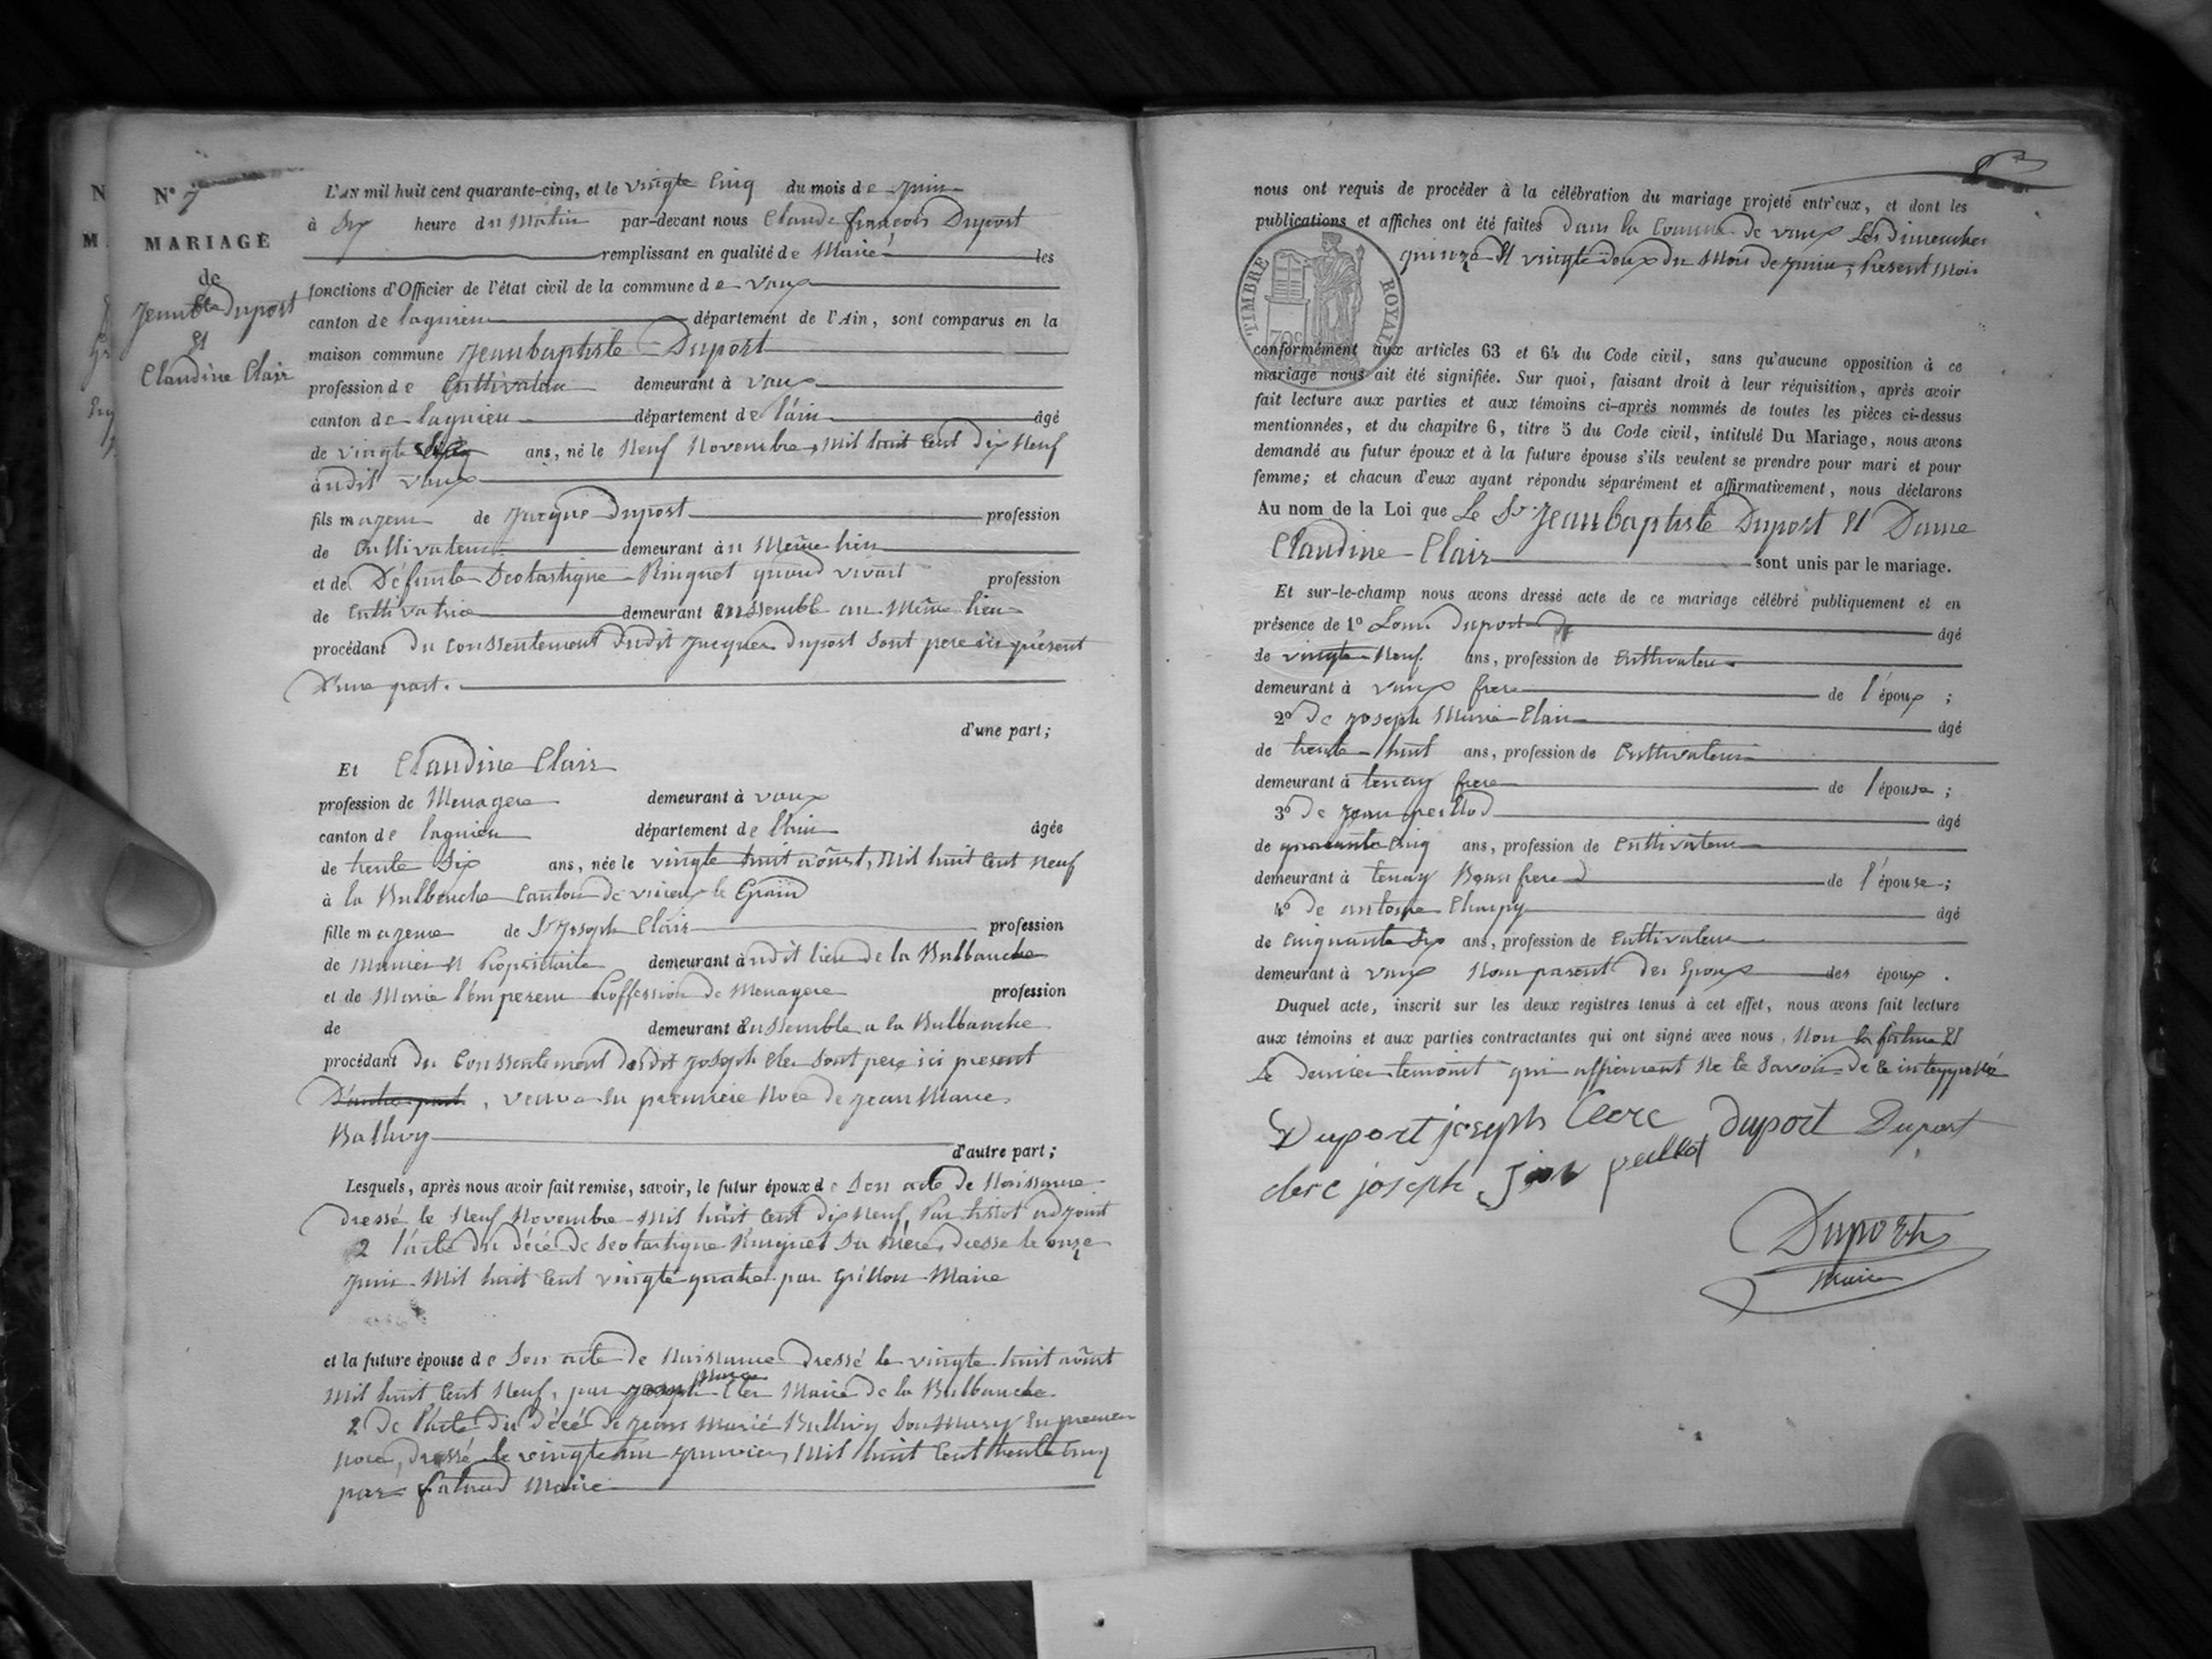 N° 7
MARIAGE
de
Jean Bte Duport
Et
Claudine Clair
L'AN mil huit cent quarante-cinq, et le vingte Cinq du mois de Juin
à Six heure du Matin par-devant nous Claude françois Duport
remplissant en qualité de Maire les
fonctions d'Officier de l'état civil de la commune de vaux
canton de lagnieu département de l'Ain, sont comparus en la
maison commune Jeanbaptiste Duport
profession de Cultivateur demeurant à vaux
canton de lagnieu département de l'ain âgé
de vingte ans, né le Neuf Novembre, Mil huit Cent Dix Neuf
audit vaux
fils majeur de Jacque Duport profession
de Cultivateur demeurant au Même lieu
et de Défunte Scolastique Ringuet quand vivait profession
de Cultivatrice demeurant enssemble au Même lieu
procédant du Conssentement dudit Jacques Duport Sont pere ici présent
D'une part.
d'une part;
Et Claudine Clair
profession de Menagere demeurant à vaux
canton de lagnieu département de l'Ain âgée
de trente Six ans, née le vingte huit août, Mil huit Cent Neuf
à la Balbenche Canton de virieux le Grand
fille majeure de Sr Joseph Clair profession
de Propriétaire demeurant audit lieu de la Bulbanche
et de Marie l'Empereur Proffession de Menagere profession
de demeurant Enssemble a la Bulbanche
procédant du Conssentement dudit Joseph Cler Sont pere ici present
D'autre part, veuve En premiere Noce de Jean Marie
Ballivy d'autre part;
Lesquels, après nous avoir fait remise, savoir, le futur époux de Son acte de Naissance
dressé le Neuf Novembre Mil huit Cent Dix Neuf, Par tissot adjoint
2 l'acte du décé de Scolastique Ringuet Sa Mère, dresse le onze
Juin Mil huit Cent vingte quatre par Grillon Maire
et la future épouse de Son acte de Naissance Dressé le vingte huit août
Mil huit Cent Neuf, par Joseph Cler Maire de la Bulbanche
2 de l'acte du décé de Jean Marie Ballivy Son Mary En premier
noce, dressé le vingte un Janvier, Mil huit Cent trente Cinq
par Maire
nous ont requis de procéder à la célébration du mariage projeté entr'eux, et dont les
publications et affiches ont été faites dans la Commune de vaux Les Dimenches
quinze Et vingte deux du Mois de Juin, Present Mois
TIMBRE ROYAL
70c
conformément aux articles 63 et 64 du Code civil, sans qu'aucune opposition à ce
mariage nous ait été signifiée. Sur quoi, faisant droit à leur réquisition, après avoir
fait lecture aux parties et aux témoins ci-après nommés de toutes les pièces ci-dessus
mentionnées, et du chapitre 6, titre 5 du Code civil, intitulé Du Mariage, nous avons
demandé au futur époux et à la future épouse s'ils veulent se prendre pour mari et pour
femme; et chacun d'eux ayant répondu séparément et affirmativement, nous déclarons
Au nom de la Loi que Le Sr Jeanbaptiste Duport Et Dame
Claudine Clair sont unis par le mariage.
Et sur-le-champ nous avons dressé acte de ce mariage célébré publiquement et en
présence de 1° Louis Duport âgé
de vingte Neuf ans, profession de Cultivateur
demeurant à vaux frere de l'époux;
2° De Joseph Marie Clair âgé
de trente huit ans, profession de Cultivateur
demeurant à tenay frere de l'épouse;
3° De Jean peillod âgé
de quarante Cinq ans, profession de Cultivateur
demeurant à tenay Beau frere de l'épouse;
4° de antoine Charpy âgé
de Cinquante Six ans, profession de Cultivateur
demeurant à vaux Non parent des Epoux des époux.
Duquel acte, inscrit sur les deux registres tenus à cet effet, nous avons fait lecture
aux témoins et aux parties contractantes qui ont signé avec nous, Non la future Et
Le dernier temoint qui affirment Ne le Savoir De ce interppellé
Duport joseph Clerc Duport Duport
clerc joseph peillot
Duport
Maire